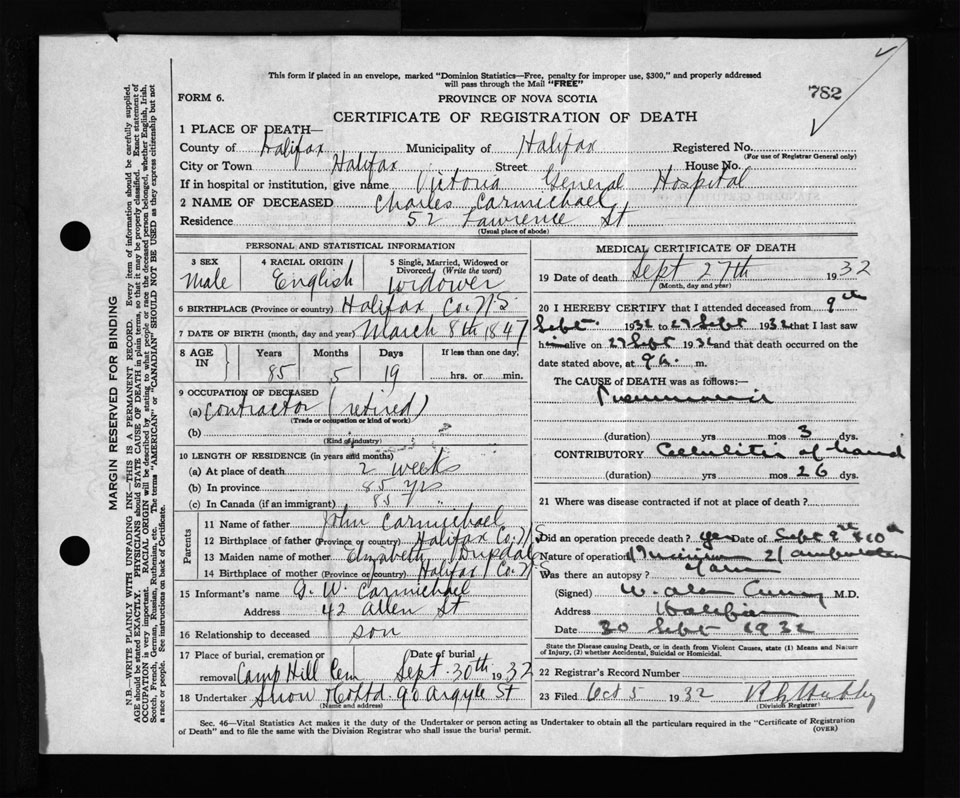 This form if placed in an envelope, marked "Dominion Statistics—Free, penalty for improper use, $300," and properly addressed
will pass through the Mail "FREE"
782
FORM 6.
PROVINCE OF NOVA SCOTIA
CERTIFICATE OF REGISTRATION OF DEATH
1 PLACE OF DEATH—
County of Halifax Municipality of Halifax Registered No.
(For use of Registrar General only)
City or Town Halifax Street House No.
If in hospital or institution, give name Victoria General Hospital
2 NAME OF DECEASED Charles Carmichael
Residence 52 Lawrence St
(Usual place of abode)
PERSONAL AND STATISTICAL INFORMATION
3 SEX 4 RACIAL ORIGIN 5 Single, Married, Widowed or
Divorced (Write the word)
Male English Widower
6 BIRTHPLACE (Province or country) Halifax Co. N.S.
7 DATE OF BIRTH (month, day and year) March 8th 1847
8 AGE IN Years Months Days If less than one day,
85 5 19 hrs. or min.
9 OCCUPATION OF DECEASED
(a) Contractor (retired)
(Trade or occupation or kind of work)
(b)
(Kind of industry)
10 LENGTH OF RESIDENCE (in years and months)
(a) At place of death 2 weeks
(b) In province 85 yrs
(c) In Canada (if an immigrant) 85 "
Parents
11 Name of father John Carmichael
12 Birthplace of father (Province or country) Halifax Co. N.S.
13 Maiden name of mother Elizabeth
14 Birthplace of mother (Province or country) Halifax Co. N.S
15 Informant's name G. W. Carmichael
Address 42 Allen St
16 Relationship to deceased son
17 Place of burial, cremation or Date of burial
removal Camp Hill Cem Sept. 30th 1932
18 Undertaker Snow & Co Ltd. 90 Argyle St
(Name and address)
MEDICAL CERTIFICATE OF DEATH
19 Date of death Sept 27th 1932
(Month, day and year)
20 I HEREBY CERTIFY that I attended deceased from 9th
Sept. 1932 to 27 Sept 1932 that I last saw
him alive on 27 Sept 1932 and that death occurred on the
date stated above, at 9 a. m.
The CAUSE OF DEATH was as follows:—
Pneumonia
(duration) yrs mos 3 dys.
CONTRIBUTORY Cellulitis of hand
(duration) yrs mos 26 dys.
21 Where was disease contracted if not at place of death?
Did an operation precede death? yes Date of Sept 9th & 10th
Nature of operation 1) Incision 2) amputation
of arm
Was there an autopsy?
(Signed) W. Alan Curry M.D.
Address Halifax
Date 30 Sept 1932
State the Disease causing Death, or in death from Violent Causes, state (1) Means and Nature
of Injury, (2) whether Accidental, Suicidal or Homicidal.
22 Registrar's Record Number
23 Filed Oct 5 1932
(Division Registrar)
Sec. 46—Vital Statistics Act makes it the duty of the Undertaker or person acting as Undertaker to obtain all the particulars required in the "Certificate of Registration
of Death" and to file the same with the Division Registrar who shall issue the burial permit. (OVER)
MARGIN RESERVED FOR BINDING
N.B.—WRITE PLAINLY WITH UNFADING INK—THIS IS A PERMANENT RECORD. Every item of information should be carefully supplied.
AGE should be stated EXACTLY. PHYSICIANS should STATE CAUSE OF DEATH in plain terms, so that it may be properly classified. Exact statement of
OCCUPATION is very important. RACIAL ORIGIN will be described by stating to what people or race the deceased person belonged, whether English, Irish,
Scotch, French, German, Russian, Ruthenian, etc. The terms "AMERICAN" or "CANADIAN" SHOULD NOT BE USED as they express citizenship but not
a race or people. See instructions on back of Certificate.